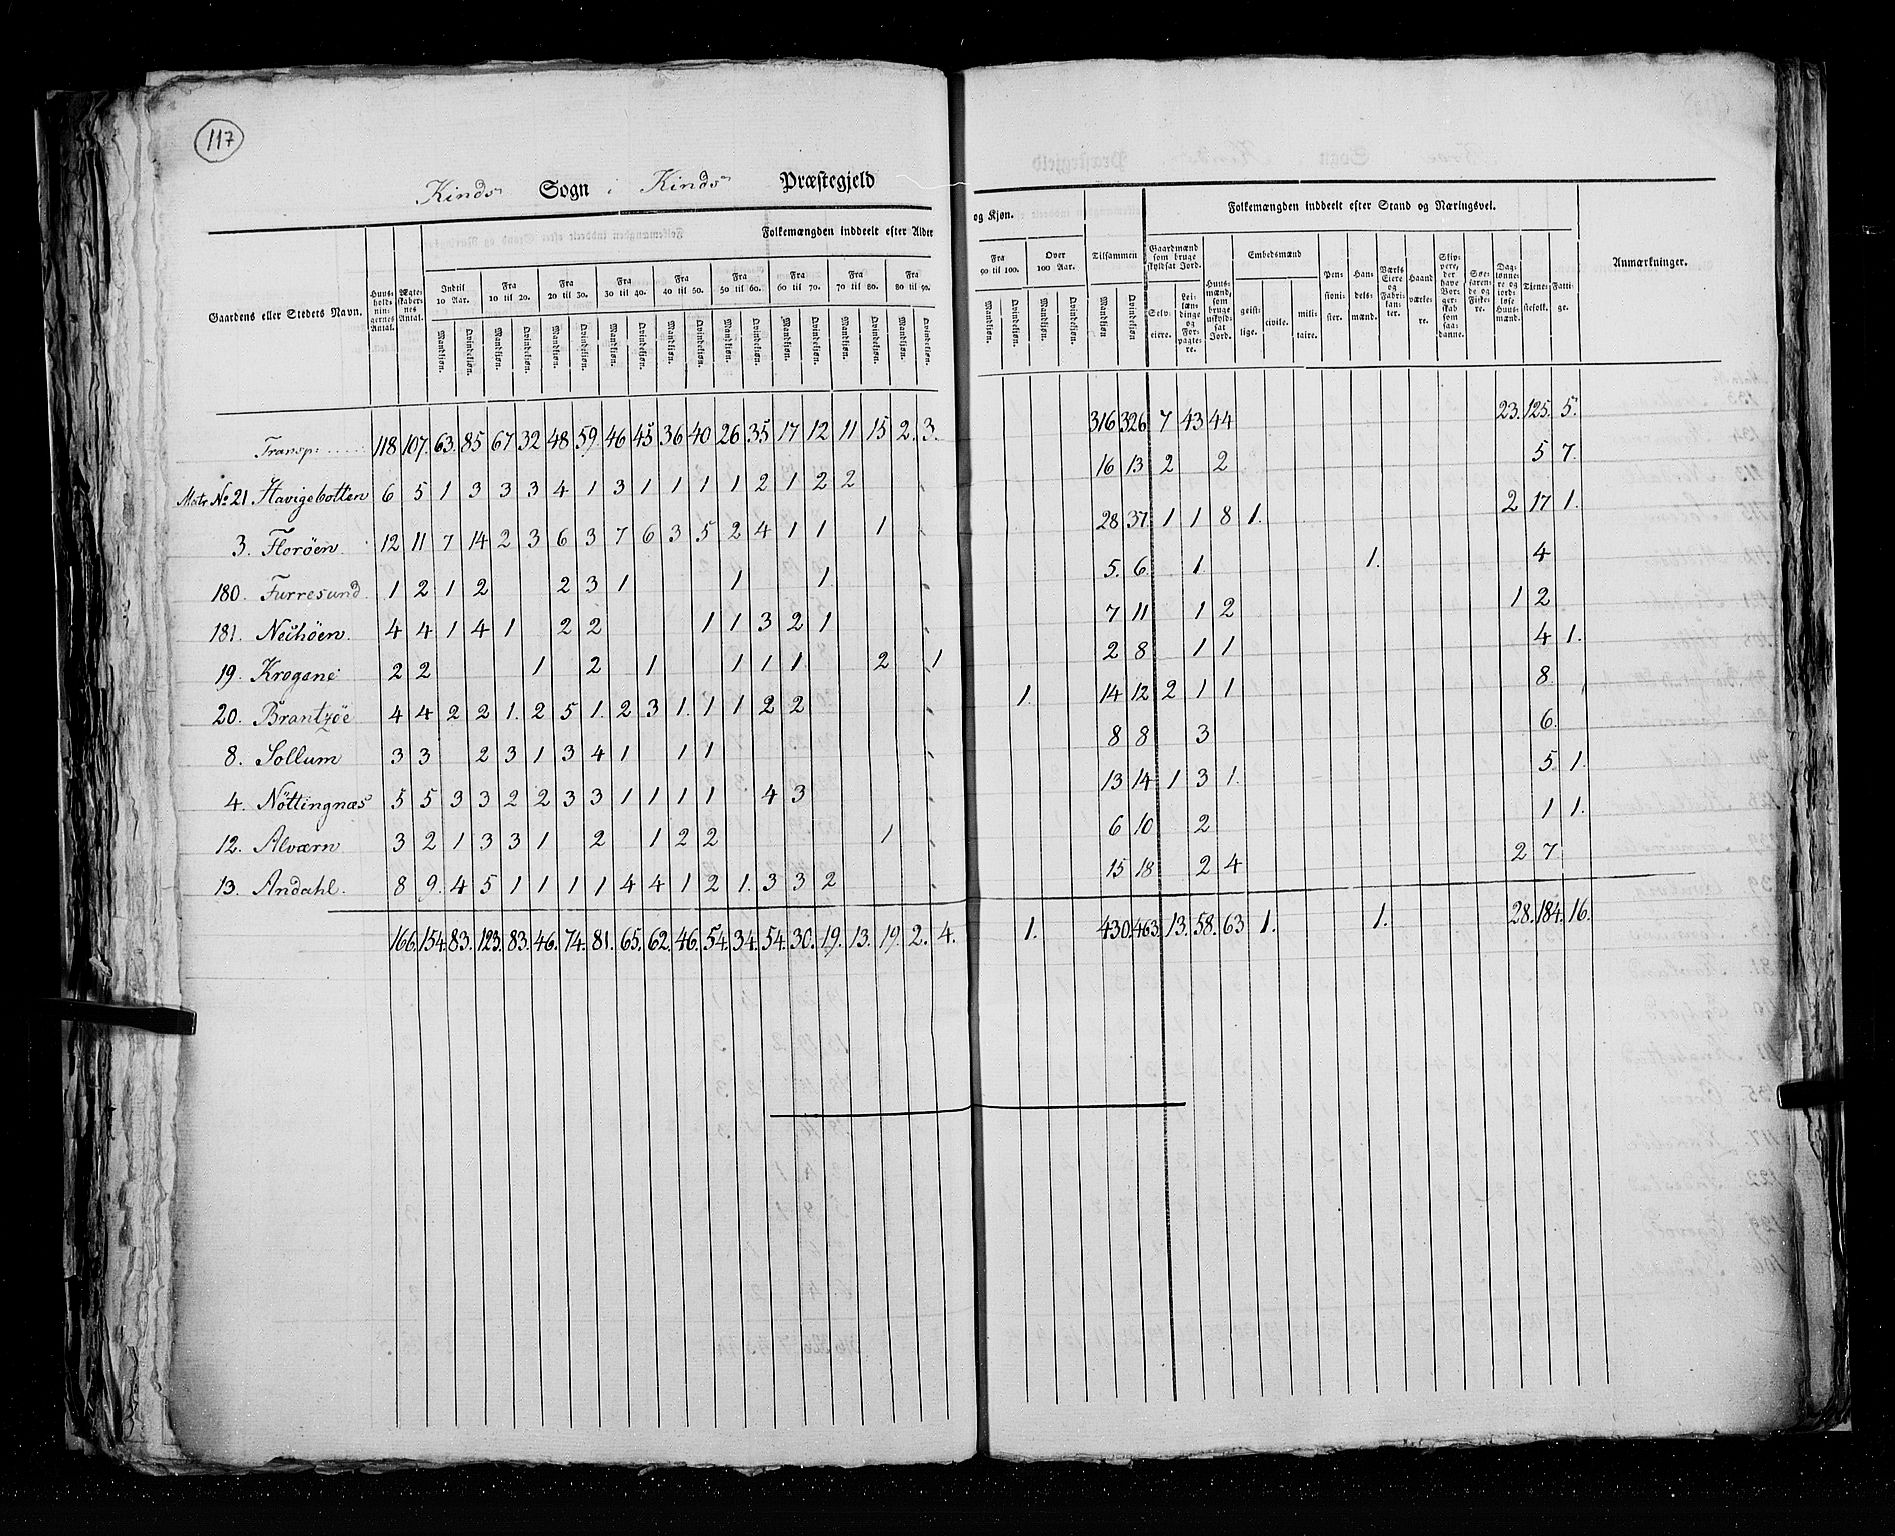 117
Kinds Sogn i Kinds Præstegjeld
og Kjøn. Folkemængden inddeelt efter Stand og Næringsvei.
Folkemængden inddeelt efter Alder
Gaardens eller Stedets Navn. Huus-holdningernes Antal. Ægteskabernes Antal. Indtil 10 Aar. Fra 10 til 20. Fra 20 til 30. Fra 30 til 40. Fra 40 til 50. Fra 50 til 60. Fra 60 til 70. Fra 70 til 80. Fra 80 til 90.
Mandkjøn. Qvindekjøn. Mandkjøn. Qvindekjøn. Mandkjøn. Qvindekjøn. Mandkjøn. Qvindekjøn. Mandkjøn. Qvindekjøn. Mandkjøn. Qvindekjøn. Mandkjøn. Qvindekjøn. Mandkjøn. Qvindekjøn. Mandkjøn. Qvindekjøn.
Fra 90 til 100. Over 100 Aar. Tilsammen Gaardmænd som bruge skyldsat Jord. Huusmænd, som bruge uskyldsat Jord. Embedsmænd Pensionister. Handelsmænd. Værks Eiere og Fabrikanter. Haandværkere. Skippere, der have Borgerskab som saadanne. Søefarende og Fiskere. Daglønnere og jordløse Huusmænd. Tjenestefolk. Fattige. Anmærkninger.
Mandkjøn. Qvindekjøn. Mandkjøn. Qvindekjøn. Mandkjøn Qvindekjøn Selveiere. Leilændinge og Forpagtere. geistlige. civile. militaire.
Transp: 118 107. 63. 85 67 32 48 59. 46 45 36 40 26 35 17 12 11 15 2. 3. 316 326 7 43 44 23. 125. 5.
Matr No 21 Havigebotten 6 5 1 3 3 3 4 1 3 1 1 1 1 2 1 2 2 16 13 2 2 5 7.
3. Florøen. 12 11 7 14 2 3 6 3 7 6 3 5 2 4 1 1 1 28 37. 1 1 8 1. 2 17 1.
180. Furresund. 1 2 1 2 2 3 1 1 1. 5. 6. 1. 1. 4
181. 4 4 1 4 1 2 2 1 1 3 2 1 7 11 1 2 1 2
19. 2 2 1 2 1 1 1 1 2 1 2 8 1 1 4 1.
20. Brantzöe 4 4 2 2 1. 2 5 1. 2 3 1. 1 1 2 2 1. 14 12 2 1 1 8.
8. Sollum 3 3 2 3 1 3 4 1 1 1 8 8 3 6.
4. Nöttingnæs 5 5 3 3 2 2 3 3 1 1 1 1 4 3 13 14 1 3 1. 5. 1.
12. Alværn 3 2 1 3 3 1 2 1 2 2 1 6 10 2 1 1.
13. Andahl. 8 9. 4 5 1 1 1 1 4 4 1 2 1. 3 3 2 15 18 2 4 2 7.
166. 154. 83. 123. 83. 46. 74. 81. 65. 62. 46. 54. 34. 54. 30. 19. 13. 19. 2. 4. 1. 430. 463. 13. 58. 63 1. 1. 28. 184. 16.